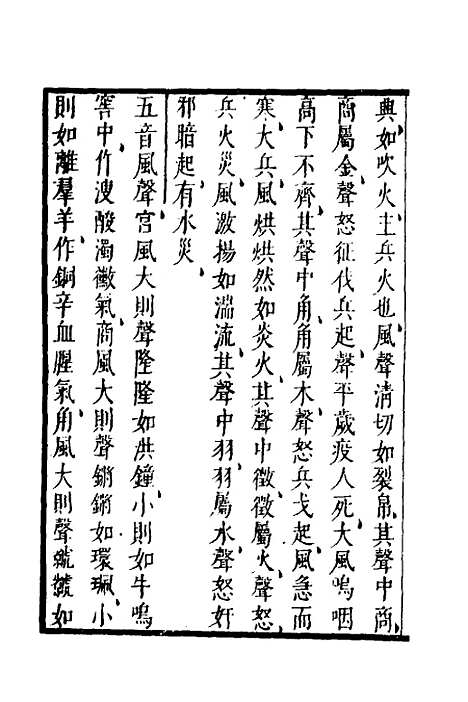 典如吹火主兵火也風聲清切如裂帛其聲中商
商屬金聲怒征伐兵起聲平歲疫人死大風嗚咽
高下不齊其聲中角角屬木聲怒兵戈起風急而
寒大兵風烘烘然如炎火其聲中徵徵屬火聲怒
兵火災風激揚如湍流其聲中羽羽屬水聲怒奸
邪暗起有水災
五音風聲宮風大則聲隆隆如洪鐘小則如牛鳴
窖中作溲酸濁黴氣商風大則聲鏘鏘如環珮小
則如離羣羊作銅辛血腥氣角風大則聲號號如